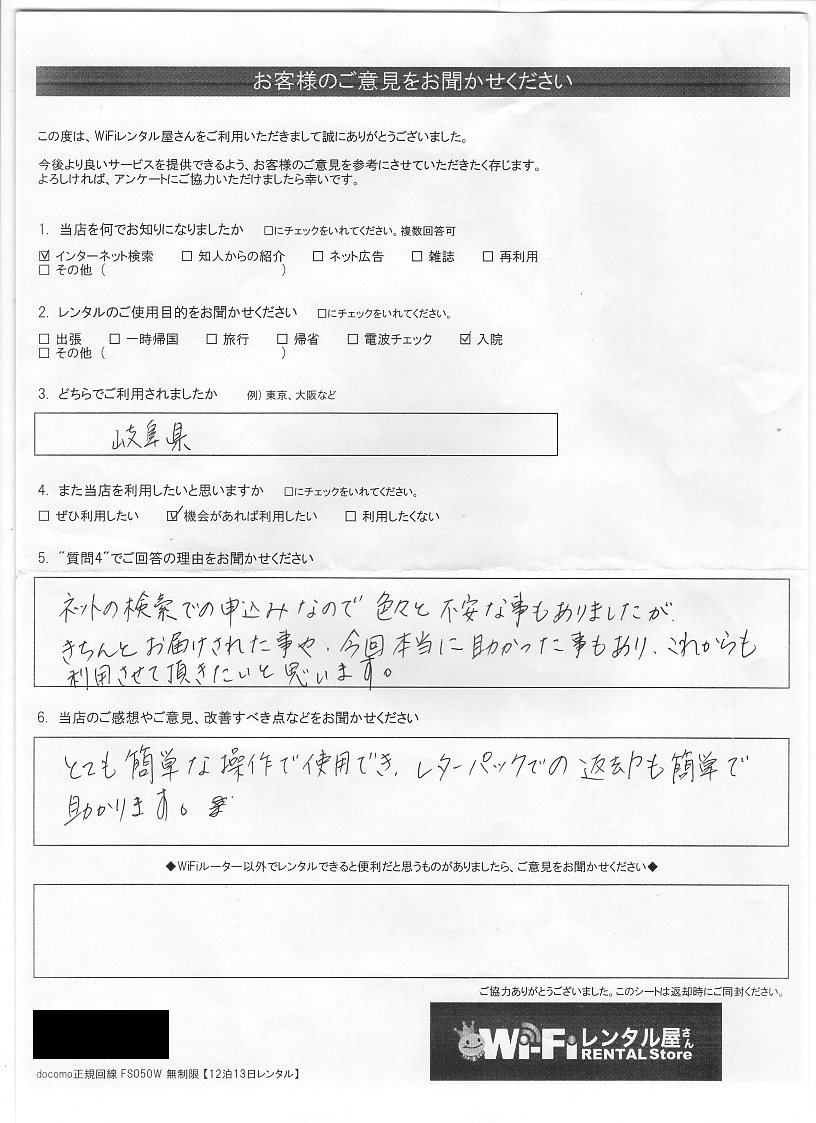 お客様のご意見をお聞かせください
この度は、WiFiレンタル屋さんをご利用いただきまして誠にありがとうございました。
今後より良いサービスを提供できるよう、お客様のご意見を参考にさせていただきたく存じます。
よろしければ、アンケートにご協力いただけましたら幸いです。
1. 当店を何でお知りになりましたか □にチェックをいれてください。複数回答可
☑ インターネット検索 □ 知人からの紹介 □ ネット広告 □ 雑誌 □ 再利用
□ その他 ( )
2. レンタルのご使用目的をお聞かせください □にチェックをいれてください。
□ 出張 □ 一時帰国 □ 旅行 □ 帰省 □ 電波チェック ☑ 入院
□ その他 ( )
3. どちらでご利用されましたか 例) 東京、大阪など
岐阜県
4. また当店を利用したいと思いますか □にチェックをいれてください。
□ ぜひ利用したい ☑ 機会があれば利用したい □ 利用したくない
5. "質問4"でご回答の理由をお聞かせください
ネットの検索での申込みなので色々と不安な事もありましたが、
きちんとお届けされた事や、今回本当に助かった事もあり、これからも
利用させて頂きたいと思います。
6. 当店のご感想やご意見、改善すべき点などをお聞かせください
とても簡単な操作で使用でき、レターパックでの返却も簡単で
助かります。
◆WiFiルーター以外でレンタルできると便利だと思うものがありましたら、ご意見をお聞かせください◆
ご協力ありがとうございました。このシートは返却時にご同封ください。
Wi-Fiレンタル屋さん
RENTAL Store
docomo正規回線 FS050W 無制限【12泊13日レンタル】